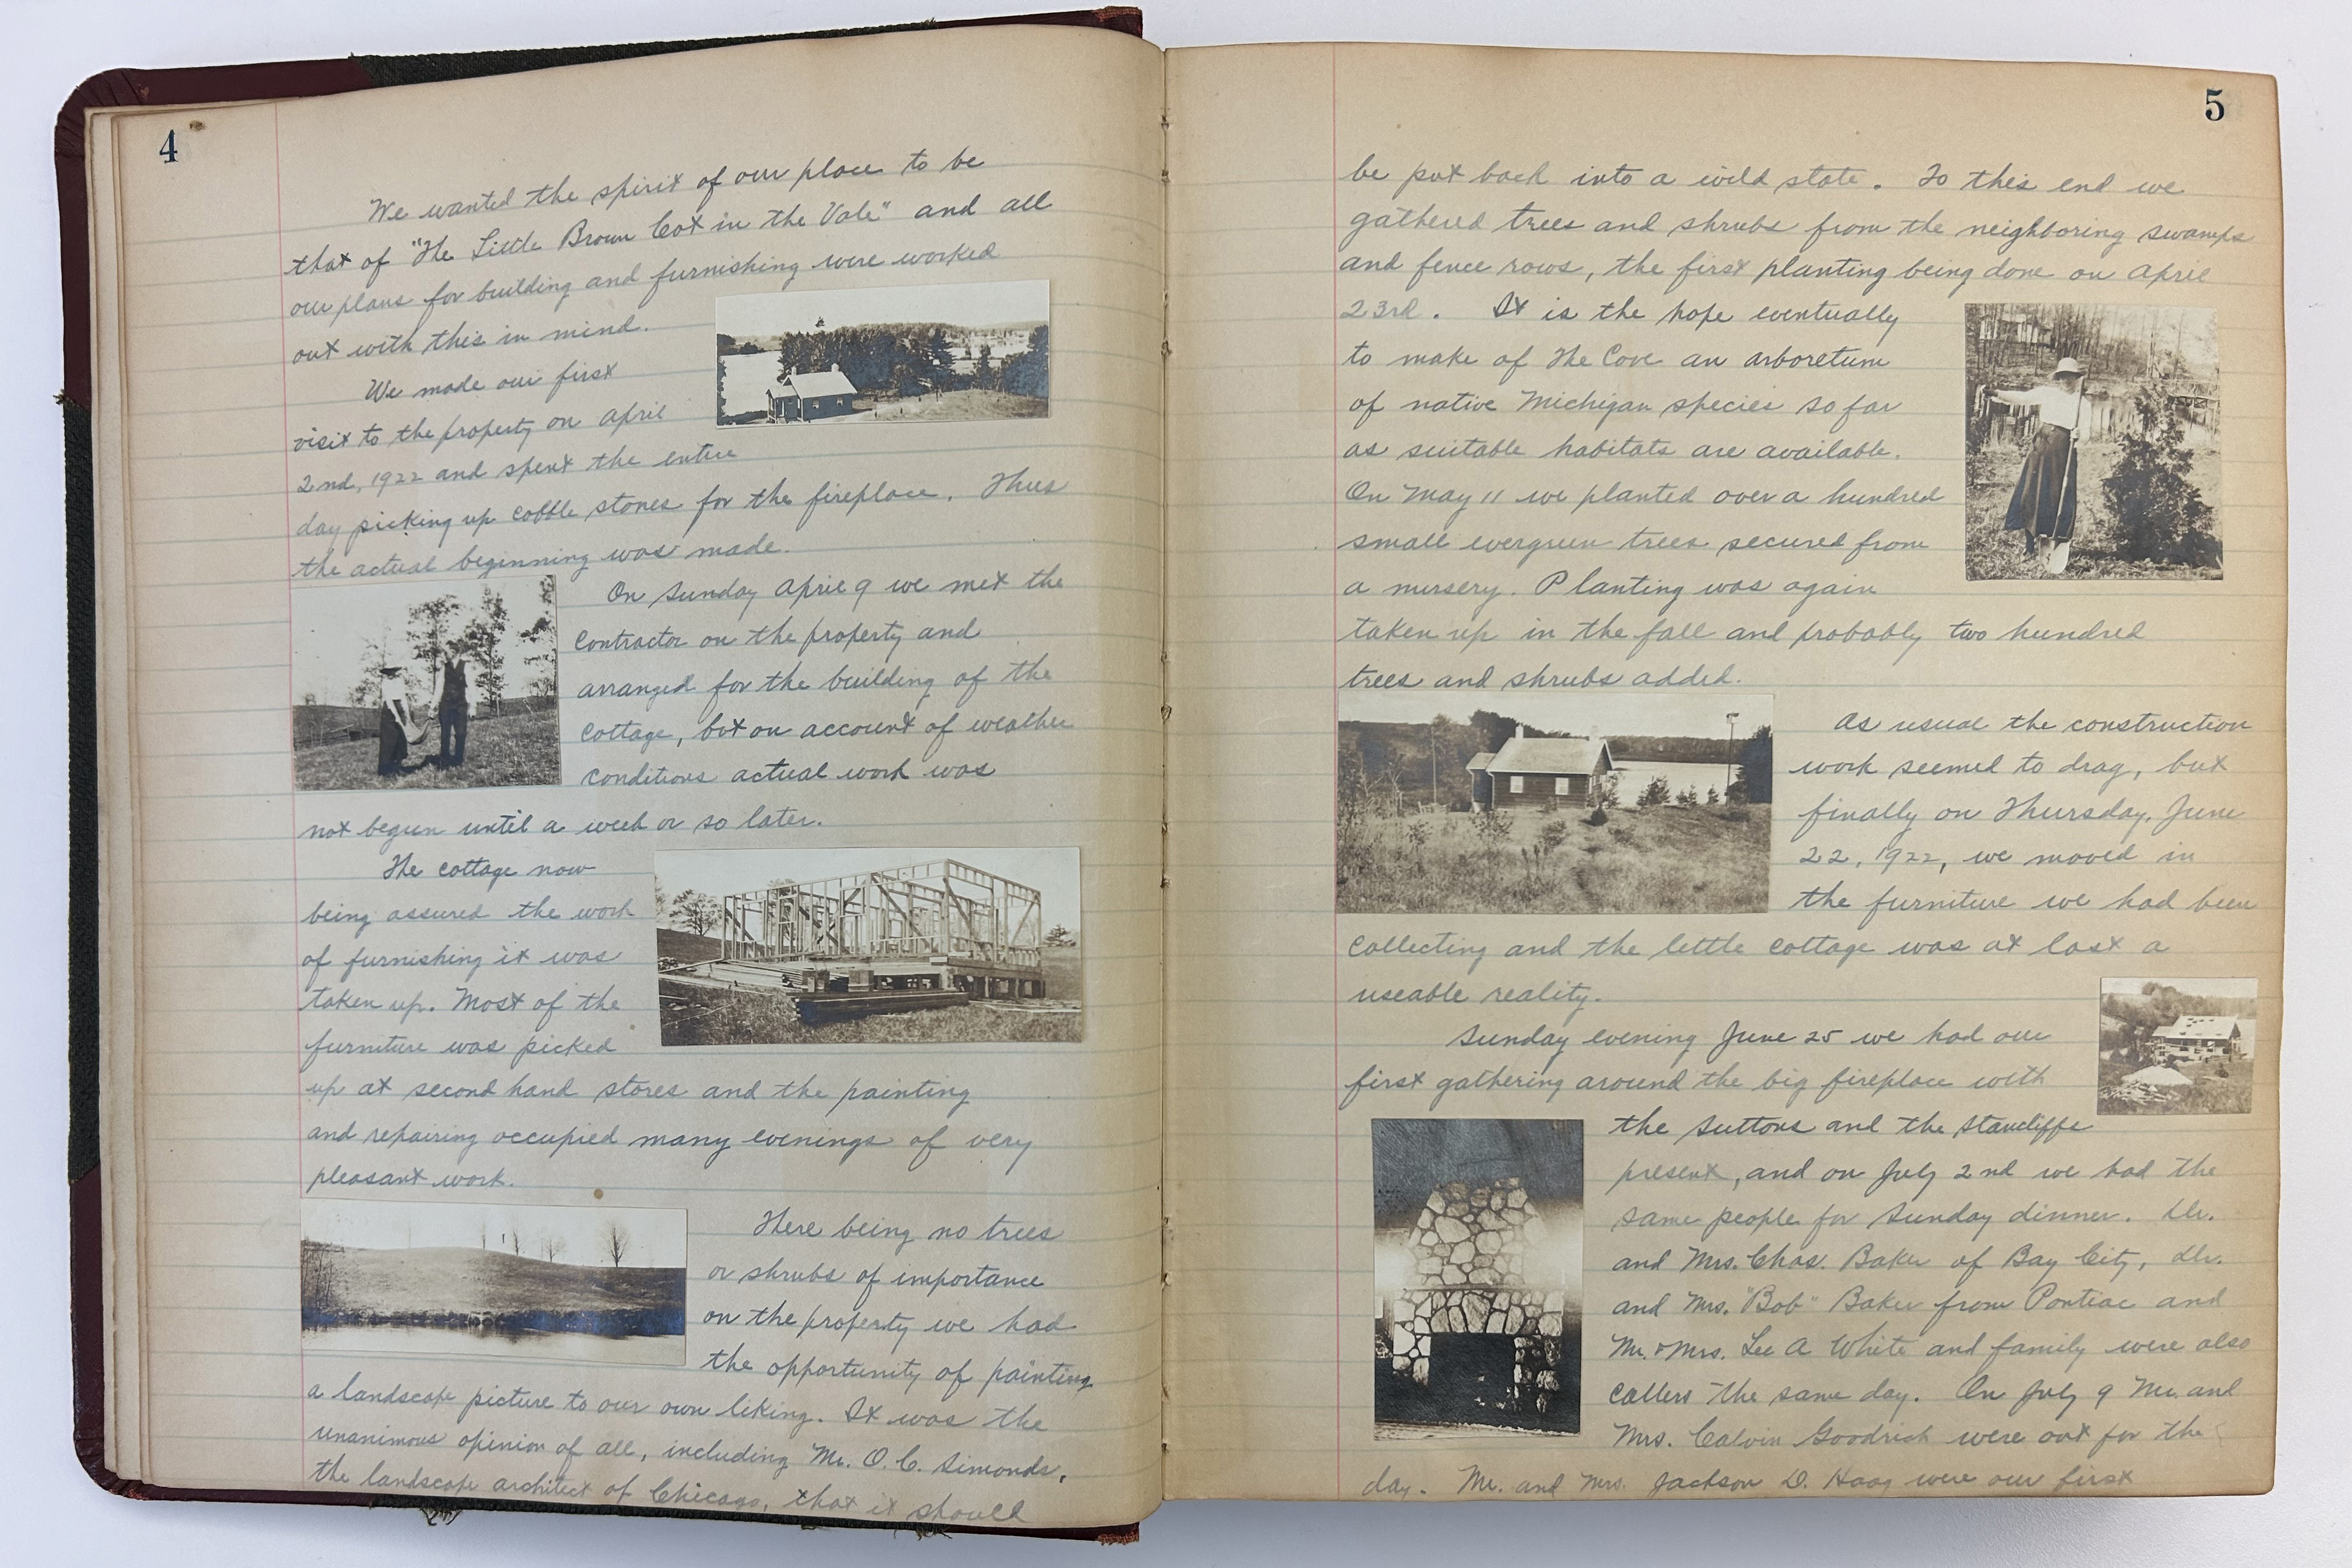 4
We wanted the spirit of our place to be
that of "The Little Brown Cot in the Vale" and all
our plans for building and furnishing were worked
out with this in mind.
We made our first
visit to the property on April
2nd, 1922 and spent the entire
day picking up cobble stones for the fireplace. Thus
the actual beginning was made.
On Sunday April 9 we met the
contractor on the property and
arranged for the building of the
cottage, but on account of weather
conditions actual work was
not begun until a week or so later.
The cottage now
being assured the work
of furnishing it was
taken up. Most of the
furniture was picked
up at second hand stores and the painting
and repairing occupied many evenings of very
pleasant work.
There being no trees
or shrubs of importance
on the property we had
the opportunity of painting
a landscape picture to our own liking. It was the
unanimous opinion of all, including Mr. O. C. Simonds,
the landscape architect of Chicago, that it should
5
be put back into a wild state. To this end we
gathered trees and shrubs from the neighboring swamps
and fence rows, the first planting being done on April
23rd. It is the hope eventually
to make of The Cove an arboretum
of native Michigan species so far
as suitable habitats are available.
On May 11 we planted over a hundred
small evergreen trees secured from
a nursery. Planting was again
taken up in the fall and probably two hundred
trees and shrubs added.
As usual the construction
work seemed to drag, but
finally on Thursday, June
22, 1922, we moved in
the furniture we had been
collecting and the little cottage was at last a
useable reality.
Sunday evening June 25 we had our
first gathering around the big fireplace with
the Suttons and the Stancliffs
present, and on July 2nd we had the
same people for Sunday dinner. Dr.
and Mrs. Chas. Baker of Bay City, Dr.
and Mrs. "Bob" Baker from Pontiac and
Mr. & Mrs. Lee A White and family were also
callers the same day. On July 9 Mr. and
Mrs. Calvin Goodrich were out for the
day. Mr. and Mrs. Jackson D. Haag were our first